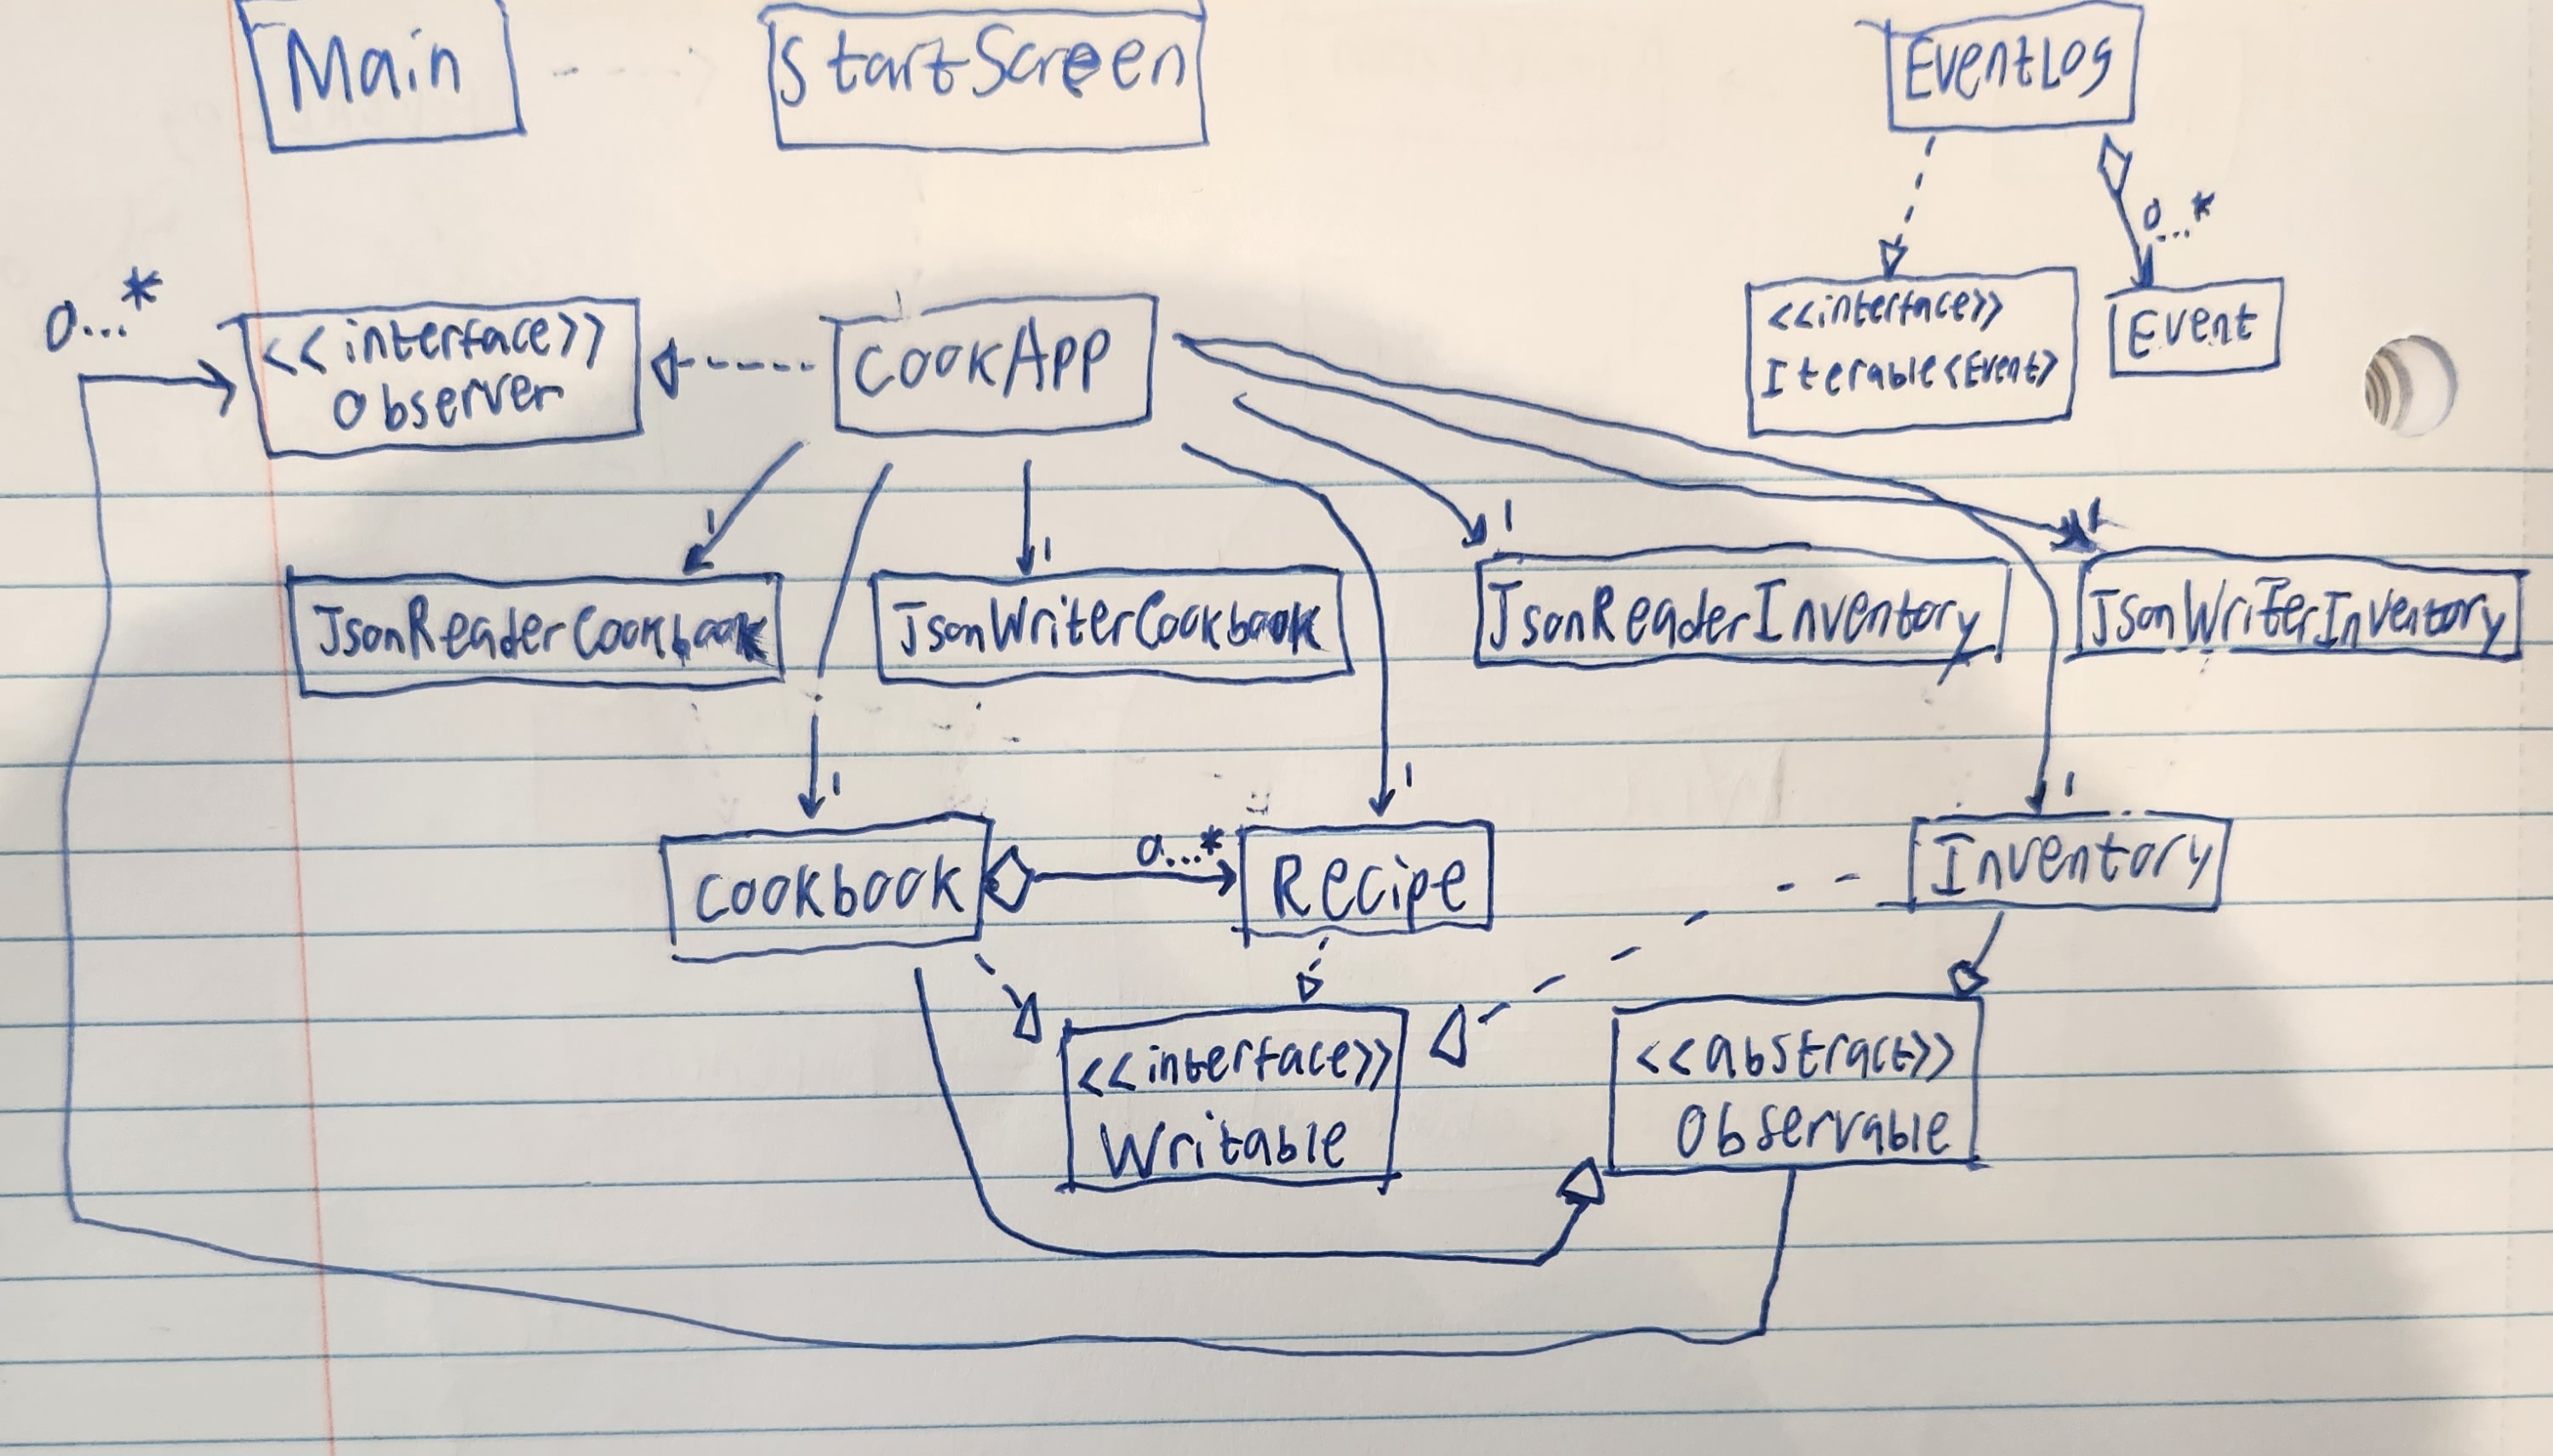 Main
StartScreen
EventLog
0...*
0...*
<<interface>>
Observer
CookApp
<<interface>>
Iterable<Event>
Event
1
1
1
1
JsonReaderCookbook
JsonWriterCookbook
JsonReaderInventory
JsonWriterInventory
1
1
1
Cookbook
0...*
Recipe
Inventory
<<interface>>
Writable
<<abstract>>
Observable